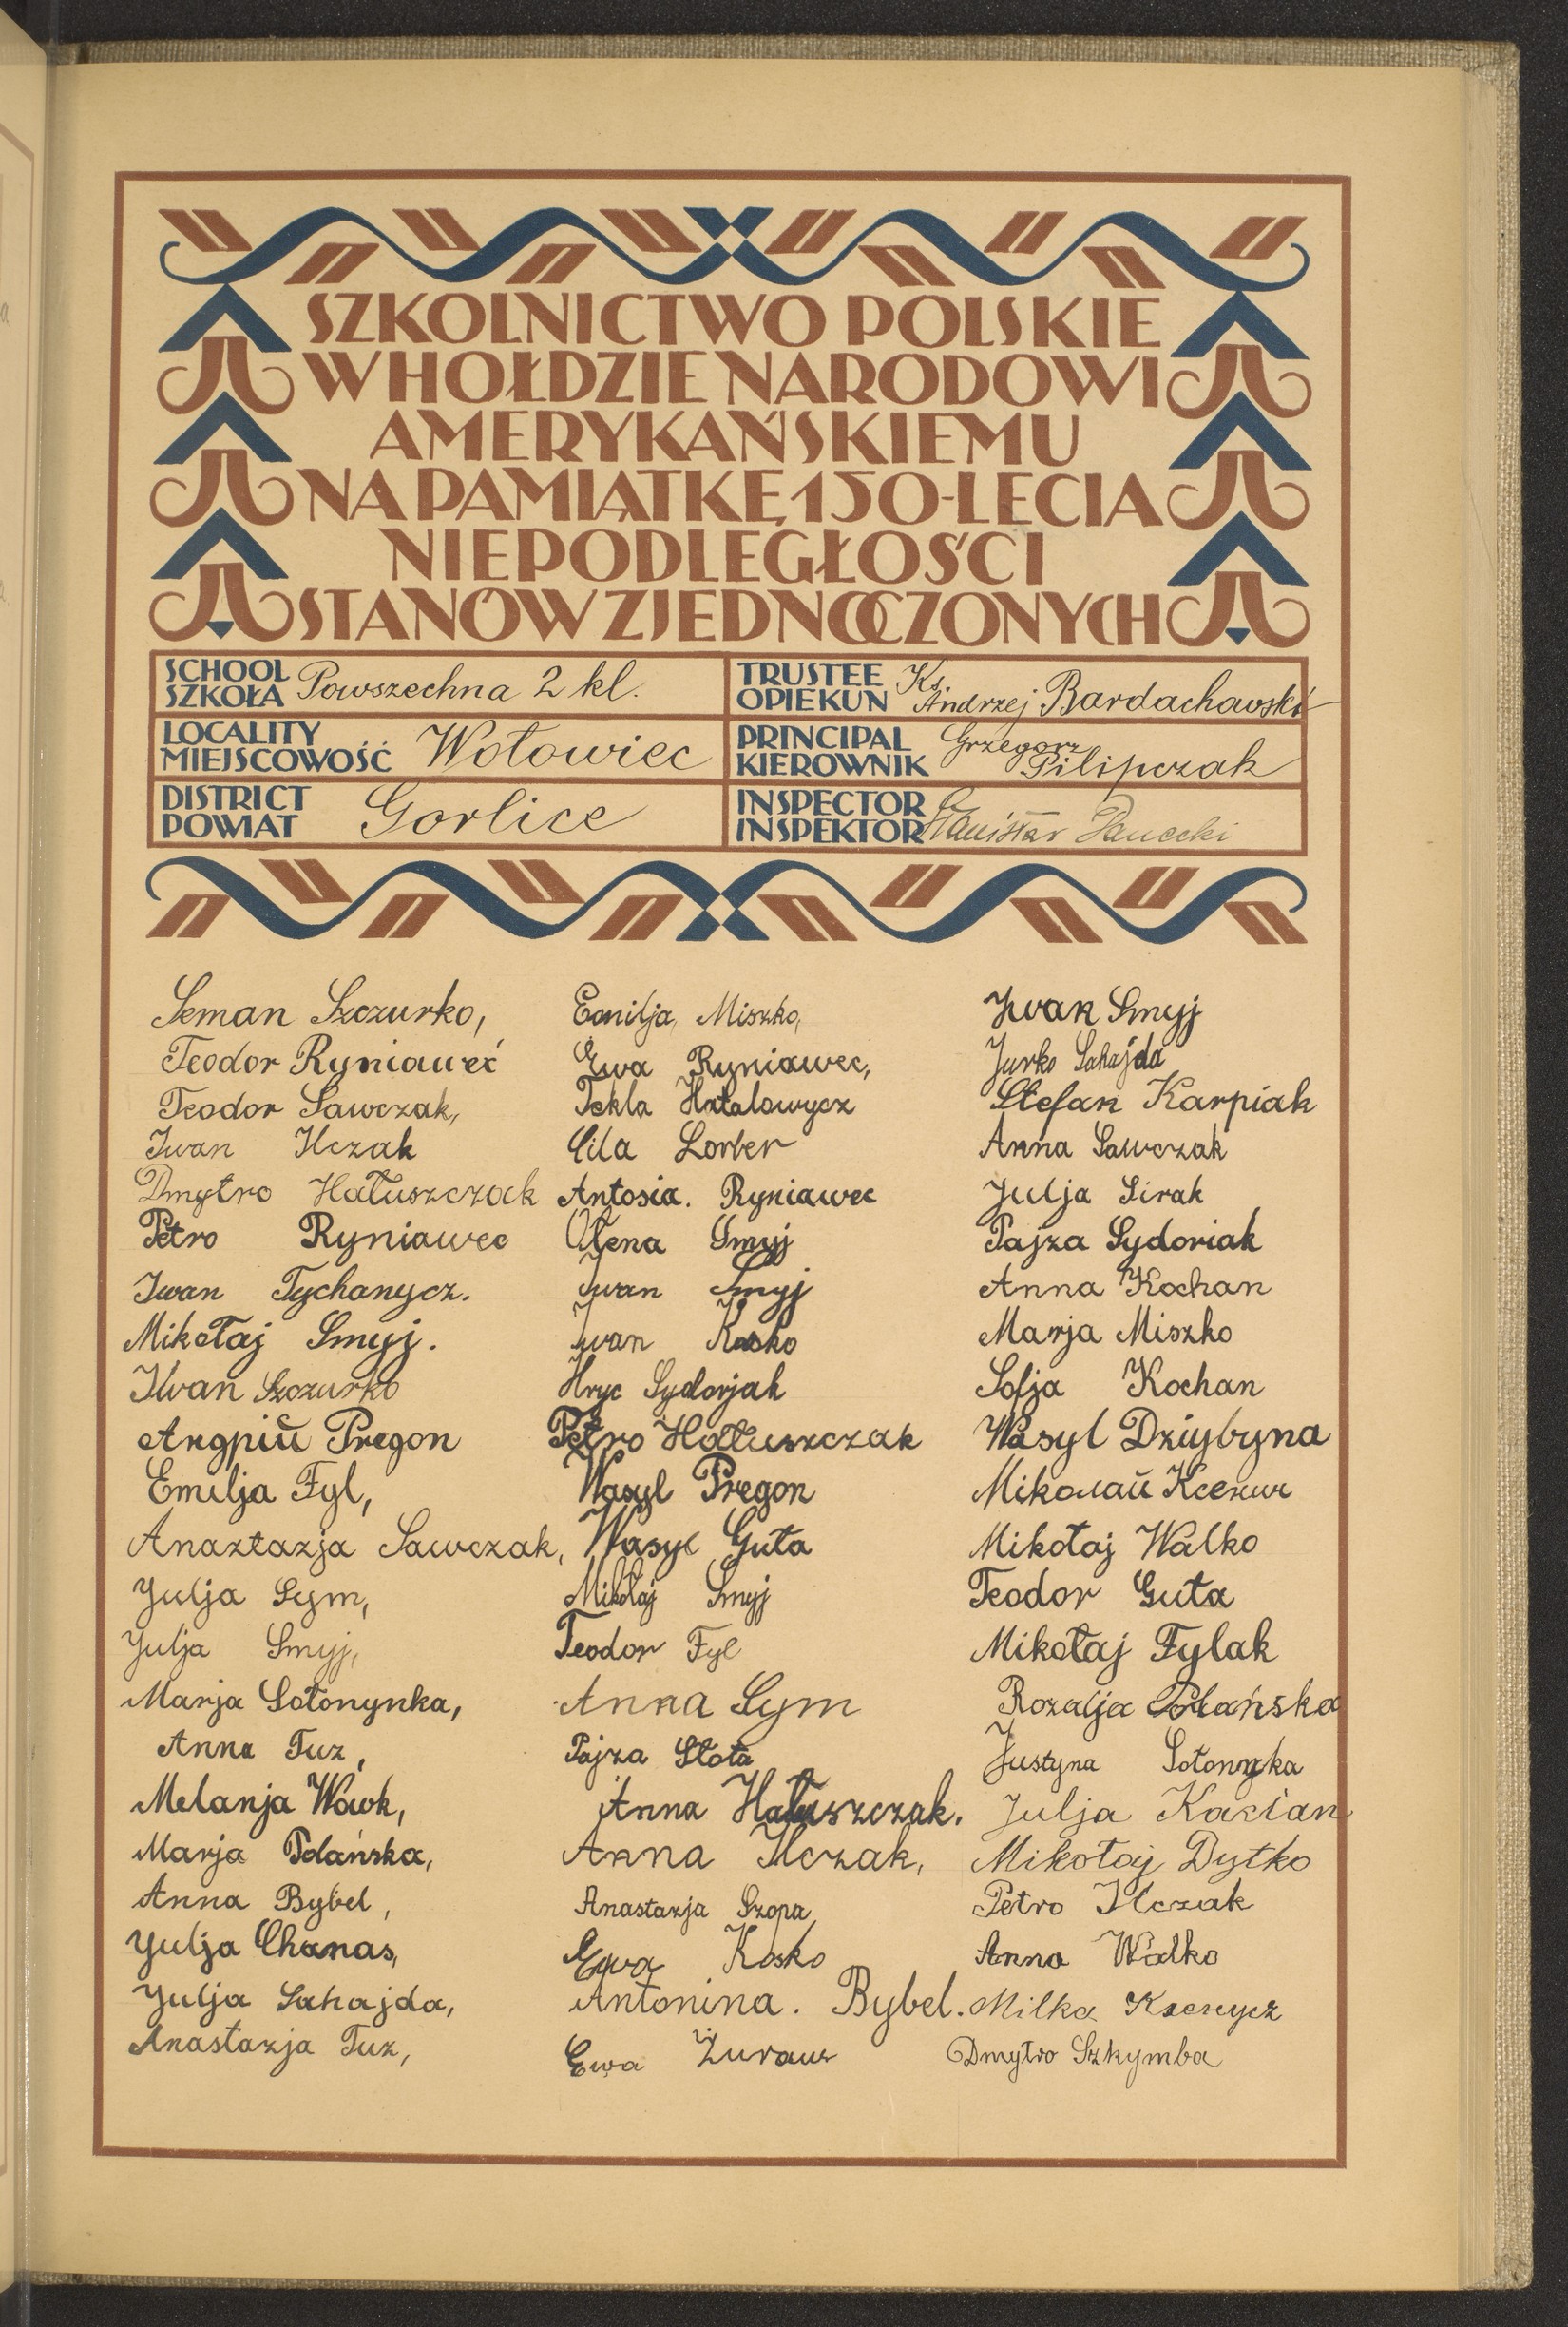 SZKOLNICTWO POLSKIE
W HOŁDZIE NARODOWI
AMERYKAŃSKIEMU
NA PAMIĄTKĘ 150-LECIA
NIEPODLEGŁOŚCI
STANÓW ZJEDNOCZONYCH
SCHOOL
SZKOŁA Powszechna 2 kl.
TRUSTEE
OPIEKUN Ks. Andrzej Bardachowski
LOCALITY
MIEJSCOWOŚĆ Wołowiec
PRINCIPAL
KIEROWNIK Grzegorz Pilipczak
DISTRICT
POWIAT Gorlice
INSPECTOR
INSPEKTOR Stanisław
Seman Szczurko,
Teodor Ryniaweć
Teodor Sawczak,
Iwan Ilczak
Dmytro Hałuszczak
Petro Ryniawec
Iwan Tychanycz.
Mikołaj Smyj.
Iwan Szczurko
Pregon
Emilja Fyl,
Anaztazja Sawczak,
Julja Sym,
Julja Smyj,
Marja Sołonynka,
Anna Tuz,
Melanja Wówk,
Marja Polańska,
Anna Bybel,
Julja Chanas,
Julja Sahajda,
Anastazja Tuz,
Emilja, Miszko,
Ewa Ryniawec,
Tekla Hatalowycz
Cila Lorber
Antosia. Ryniawec
Ołena Smyj
Iwan Smyj
Iwan Kosko
Hryc Sydorjak
Petro Hałuszczak
Wasyl Pregon
Wasyl Guta
Mikołaj Smyj
Teodor Fyl
Anna Sym
Pajza Słota
Anna Hałuszczak.
Anna Ilczak,
Anastazja Szopa,
Ewa Kosko
Antonina. Bybel.
Ewa Żuraw
Iwan Smyj
Jurko Sahajda
Stefan Karpiak
Anna Sawczak
Julja Sirak
Pajza Sydoriak
Anna Kochan
Marja Miszko
Sofja Kochan
Wasyl Dziybyna
Mikołaj Walko
Teodor Guta
Mikołaj Fylak
Rozalja Polańska
Justyna Sołonynka
Julja Kacian
Mikołaj Dytko
Petro Ilczak
Anna Walko
Milka
Dmytro Szkymba